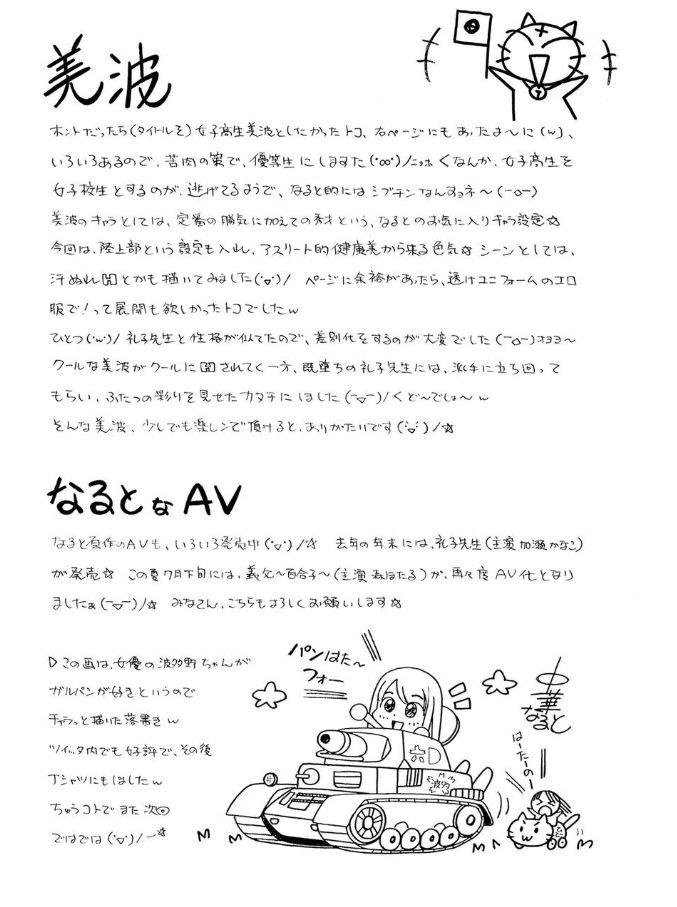 美波
ホントだったら(タイトルを)女子高生美波としたかったトコ、右ページにもあったよーに(w)、
いろいろあるので、苦肉の策で、優等生にしますた(°∞°)/ニッホ くなんか、女子高生を
女子校生とするのが、逃げてるようで、なると的にはシブチンなんすョネ〜(-o-)
美波のキャラとしては、定番の勝気に加えての秀才という、なるとのお気に入りキャラ設定☆
今回は、陸上部という設定も入れ、アスリート的健康美から来る色気☆ シーンとしては、
汗ぬれHとかも描いてみました(°▽°)/ ページに余裕があったら、透けユニフォームのエロ
服で!って展開も欲しかったトコでしたw
ひとつ(°w°)/ 礼子先生と性格が似てたので、差別化をするのが大変でした(-o-)オヨヨ〜
クールな美波がクールに囚されてく一方、既堕ちの礼子先生には、派手に立ち回って
もらい、ふたつの彩りを見せたカタチにしました(-▽-)/くど〜でしょ〜w
そんな美波、少しでも楽しんで頂けると、ありがたいです(°▽°)/☆
なるとなAV
なると原作のAVも、いろいろ発売中(°▽°)/☆ 去年の年末には、礼子先生(主演 加瀬かなこ)
が発売☆ この夏7月下旬には、義父〜百合子〜(主演 )が、再々度AV化となり
ましたぁ(-▽-)/☆ みなさん、こちらもよろしくお願いします☆
▷この画は、女優の波多野ちゃんが
ガルパンが好きというので
チャラっと描いた落書きw
ツイッタ内でも好評で、その後
Tシャツにもしましたw
ちゅうコトでまた次回
ではでは(°▽°)/―☆
パンはた〜
フォー
波多
なると
はーたーのー